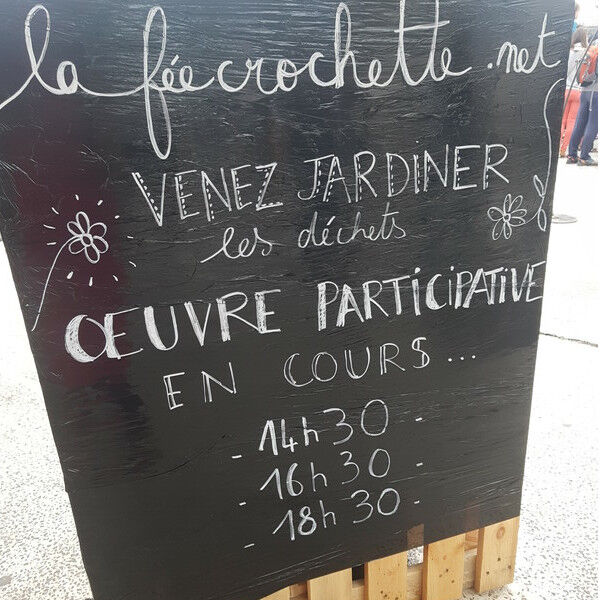 la féecrochette.net
VENEZ JARDINER
les déchets
ŒUVRE PARTICIPATIVE
EN COURS...
- 14h30 -
- 16h30 -
- 18h30 -